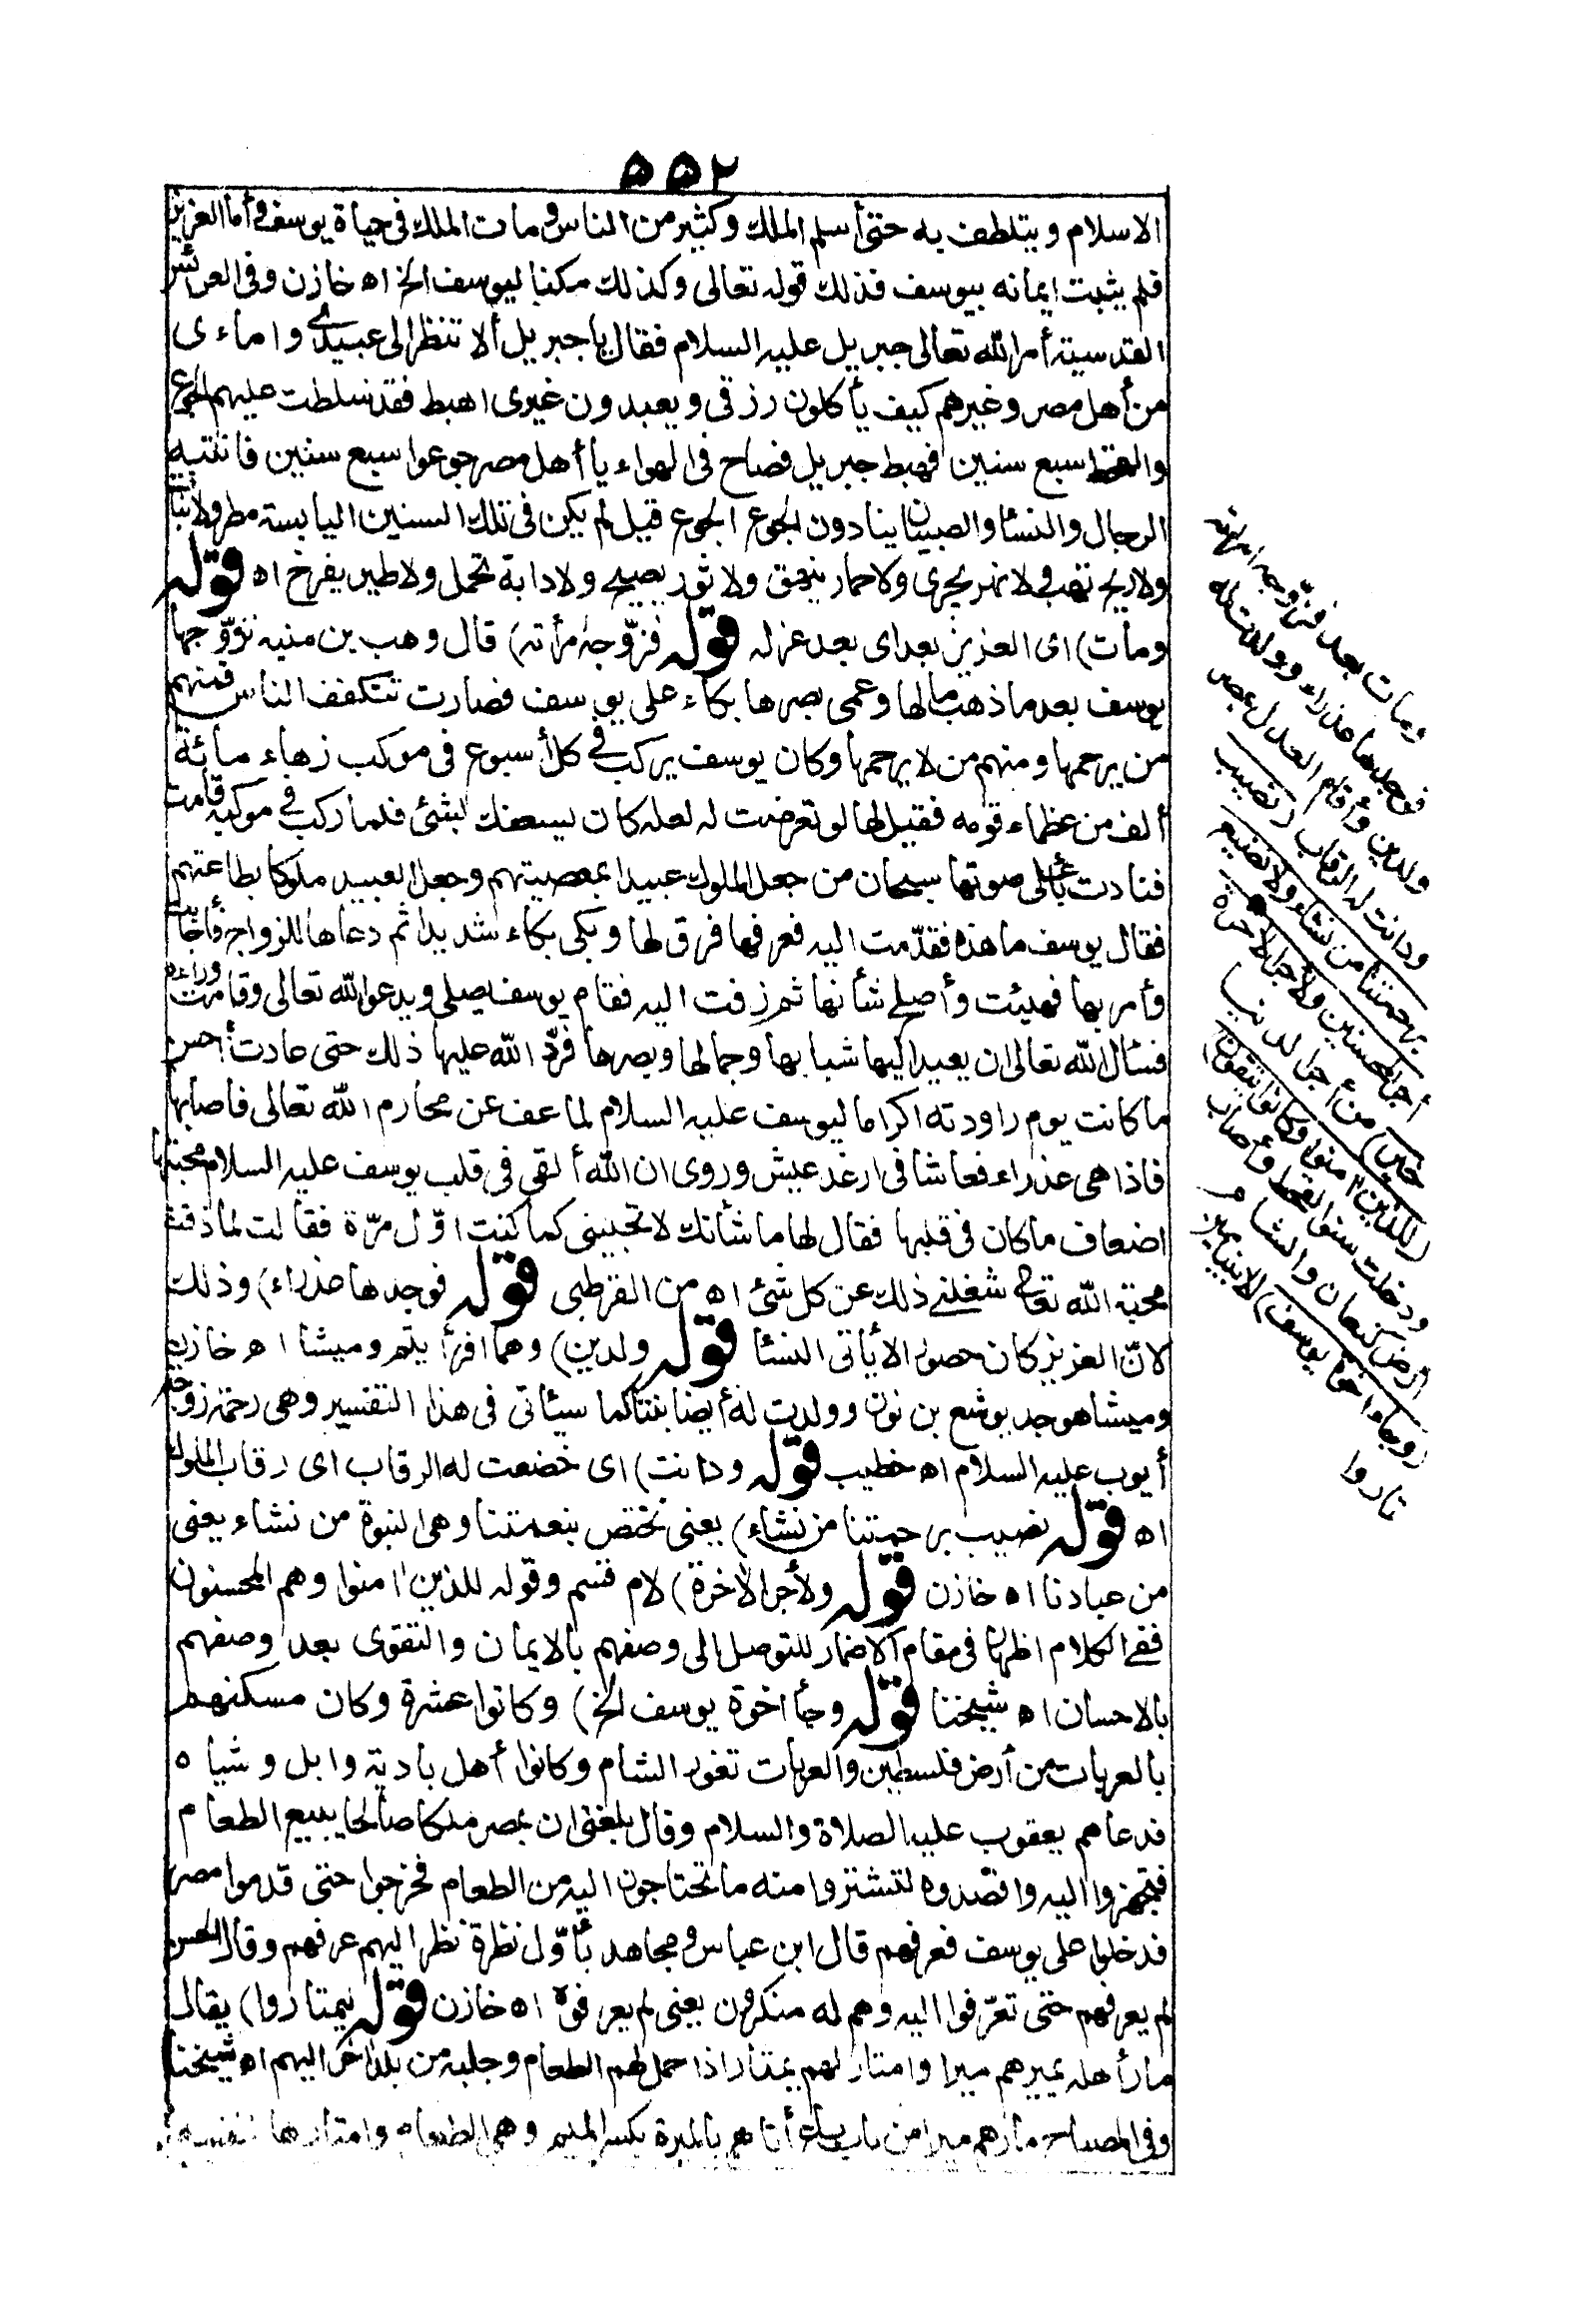 ٥٥٢
الاسلام ويتلطف به حتى أسلم الملك وكثير من الناس ومات الملك فى حياة يوسف وأما العزيز
فلم يثبت ايمانه بيوسف فذلك قوله تعالى وكذلك مكنا ليوسف الخ اه خازن وفى العرائس
القدسية أمر الله تعالى جبريل عليه السلام فقال يا جبريل ألا تنظر الى عبيدى واماءى
من أهل مصر وغيرهم كيف يأكلون رزقى ويعبدون غيرى اهبط فقد سلطت عليهم الجوع
والقحط سبع سنين فهبط جبريل فصاح فى الهواء يا أهل مصر جوعوا سبع سنين فانتبه
الرجال والنسا والصبيان ينادون الجوع الجوع قيل لم يكن فى تلك السنين اليابسة مطر ولا نبات
ولا ريح تهب ولا نهر يجرى ولا حمار ينهق ولا ثور يصيح ولا دابة تحمل ولا طير يفرخ اه قوله
ومات) اى العزيز بعد اى بعد عزله قوله فزوّجه امرأته) قال وهب بن منبه تزوّجها
يوسف بعد ما ذهب مالها وعمى بصرها بكاء على يوسف فصارت تتكفف الناس فمنهم
من يرحمها ومنهم من لا يرحمها وكان يوسف يركب فى كل أسبوع فى موكب زهاء مائة
ألف من عظماء قومه فقيل لها لو تعرضت له لعله كان يسعفك بشئ فلما ركب فى موكبه قامت
فنادت بأعلى صوتها سبحان من جعل الملوك عبيدا بمعصيتهم وجعل العبيد ملوكا بطاعتهم
فقال يوسف ما هذه فقدّمت اليه فعرفها فرق لها وبكى بكاء شديدا ثم دعاها للزواج فأجابت
وأمر بها فهيئت وأصلح شأنها ثم زفت اليه فقام يوسف يصلى ويدعو الله تعالى وقامت وراءه
فسئال الله تعالى ان يعيد اليها شبابها وجمالها وبصرها فردّ الله عليها ذلك حتى عادت أحسن
ما كانت يوم راودته اكراما ليوسف عليه السلام لما عف عن محارم الله تعالى فاصابها
فاذا هى عذراء فعاشا فى ارغد عيش وروى ان الله ألقى فى قلب يوسف عليه السلام محبتها
اضعاف ما كان فى قلبها فقال لها ما شأنك لا تحبينى كما كنت اوّل مرّة فقالت لما ذقت
محبة الله تعالى شغلنى ذلك عن كل شئ اه من القرطبى قوله فوجدها عذراء) وذلك
لانّ العزيز كان حصورا لا يأتى النسا قوله ولدين) وهما افرأيتم وميشا اه خازن
وميشا هو جد يوشع بن نون وولدت له أيضا بنتا كما سيئاتى فى هذا التفسير وهى رحمة زوجة
أيوب عليه السلام اه خطيب قوله ودانت) اى خضعت له الرقاب اى رقاب الملوك
اه قوله نصيب برحمتنا من نشاء) يعنى نختص بنعمتنا وهى النبوة من نشاء يعنى
من عبادنا اه خازن قوله ولأجر الآخرة) لام قسم وقوله للذين آمنوا وهم المحسنون
ففى الكلام اظهار فى مقام الاضمار للتوصل الى وصفهم بالايمان والتقوى بعد وصفهم
بالاحسان اه شيخنا قوله وجأ اخوة يوسف الخ) وكانوا عشرة وكان مسكنهم
بالعربات من أرض فلسطين والعربات ثغور الشام وكانوا أهل بادية وابل وشياه
فدعاهم يعقوب عليه الصلاة والسلام وقال بلغنى ان بمصر ملكا صالحا يبيع الطعام
فتجهزوا اليه واقصدوه لتشتروا منه ما تحتاجون اليه من الطعام فخرجوا حتى قدموا مصر
فدخلوا على يوسف فعرفهم قال ابن عباس ومجاهد بأوّل نظرة نظر اليهم عرفهم وقال الحسن
لم يعرفهم حتى تعرّفوا اليه وهم له منكرون يعنى لم يعرفوه اه خازن قوله ليمتاروا) يقال
مار أهله يميرهم ميرا وامتار لهم يمتار اذا حمل لهم الطعام وجلبه من بلد آخر اليهم اه شيخنا
وفى المصباح مارهم ميرا من باب باع أتاهم بالميرة بكسر الميم وهى الطعام وامتارها لنفسه
ومات بعد فزوجه امرأته
فوجدها عذراء وولدت له
ولدين وأقام العدل بمصر
ودانت له الرقاب (نصيب
برحمتنا من نشاء ولا نضيع
أجر المحسنين ولأجر الآخرة
خير) من أجر الدنيا
(للذين آمنوا وكانوا يتقون)
ودخلت سنوا القحط وأصاب
أرض كنعان والشام
(وجاء اخوة يوسف) الا بنيامين
تاروا